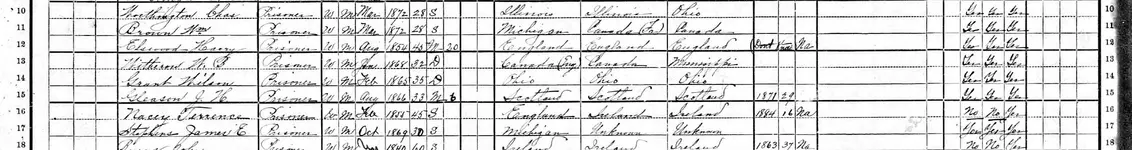 10 Worthington Chas Prisoner W M Mar 1872 28 S Illinois Illinois Ohio Yes Yes Yes 10
11 Brown Wm Prisoner W M Mar 1872 28 S Michigan Canada Canada Yes Yes Yes 11
12 Harry Prisoner W M Aug 1854 45 M 20 England England England Dont Know Na Yes Yes Yes 12
13 W. F Prisoner W M Jan 1868 32 D Canada (Eng) Canada Yes Yes Yes 13
14 Grant Wilson Prisoner W M Feb 1865 35 D Ohio Ohio Ohio Yes Yes Yes 14
15 Gleason J. H Prisoner W M Aug 1866 33 M 6 Scotland Scotland Scotland 1871 29 Yes Yes Yes 15
16 Nacey Terrence Prisoner W M Feb 1855 45 S England Ireland Ireland 1884 16 Na No No Yes 16
17 James E Prisoner W M Oct 1869 30 S Michigan Unknown Unknown Yes Yes Yes 17
18 W M 1840 60 S Ireland Ireland Ireland 1863 37 Na No No Yes 18